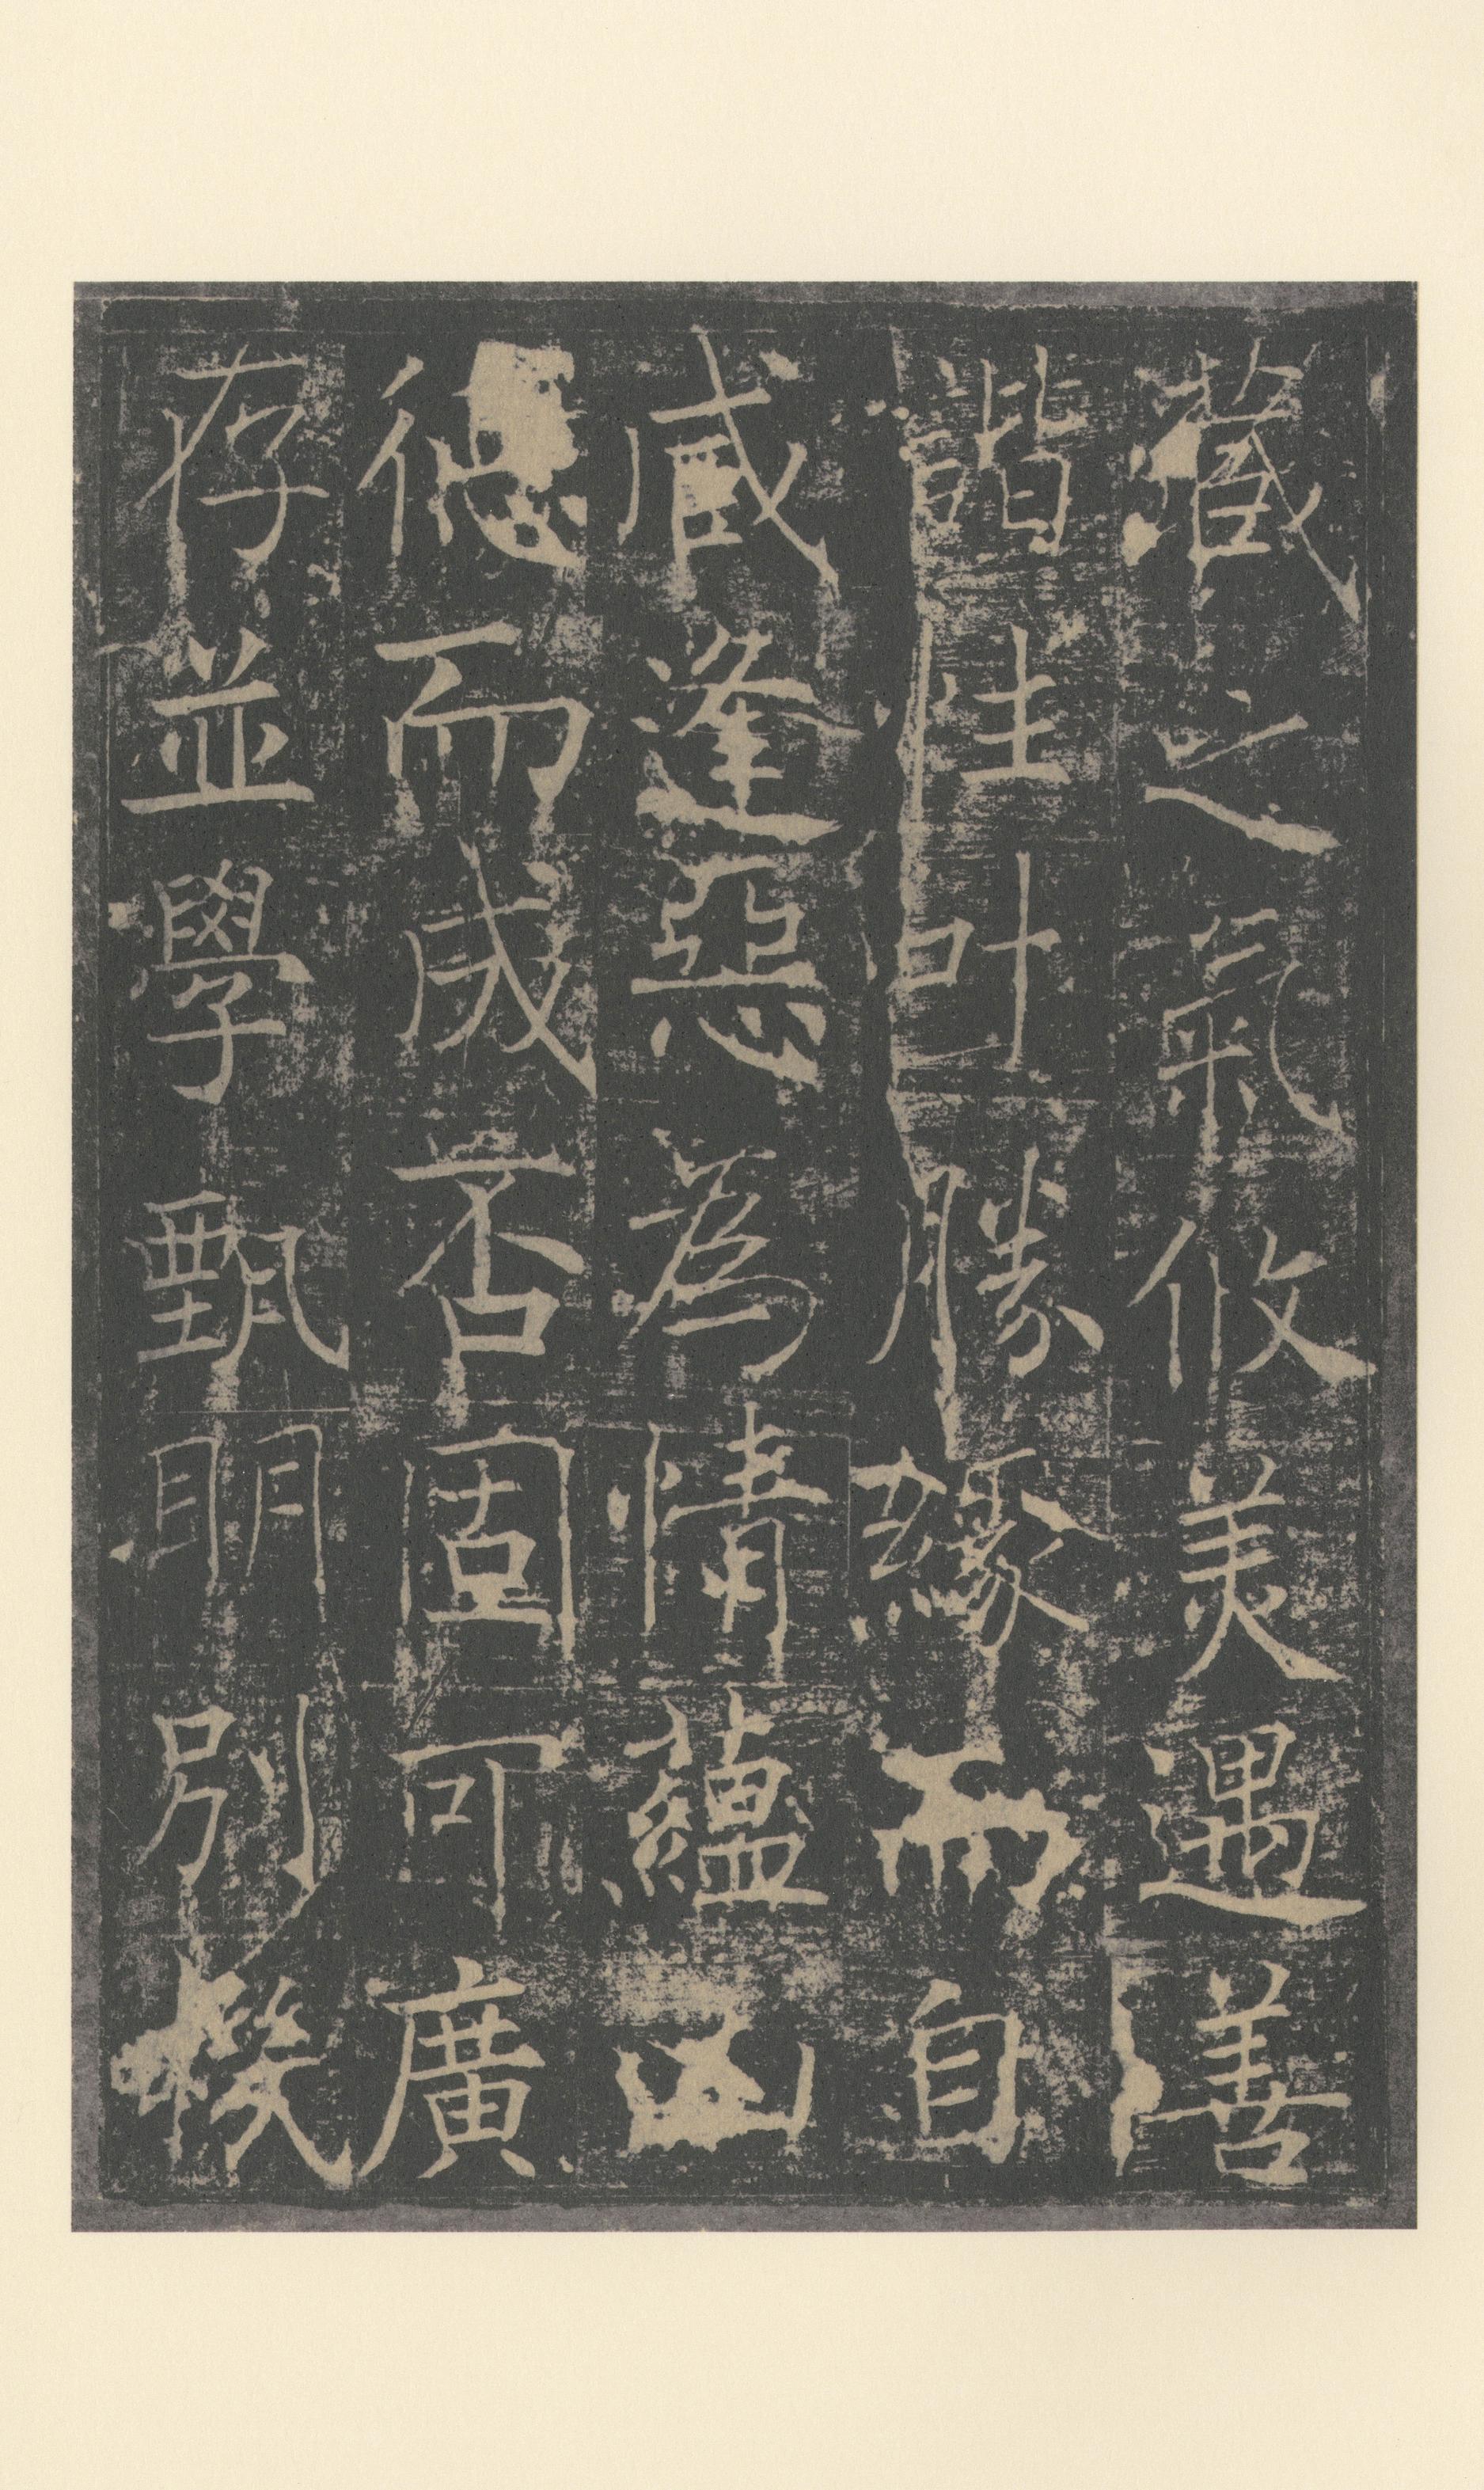 藏之氣攸美遇善
諧佳叶勝緣而自
咸逢惡爲情蘊凶
德而成否固可廣
存並學甄明別